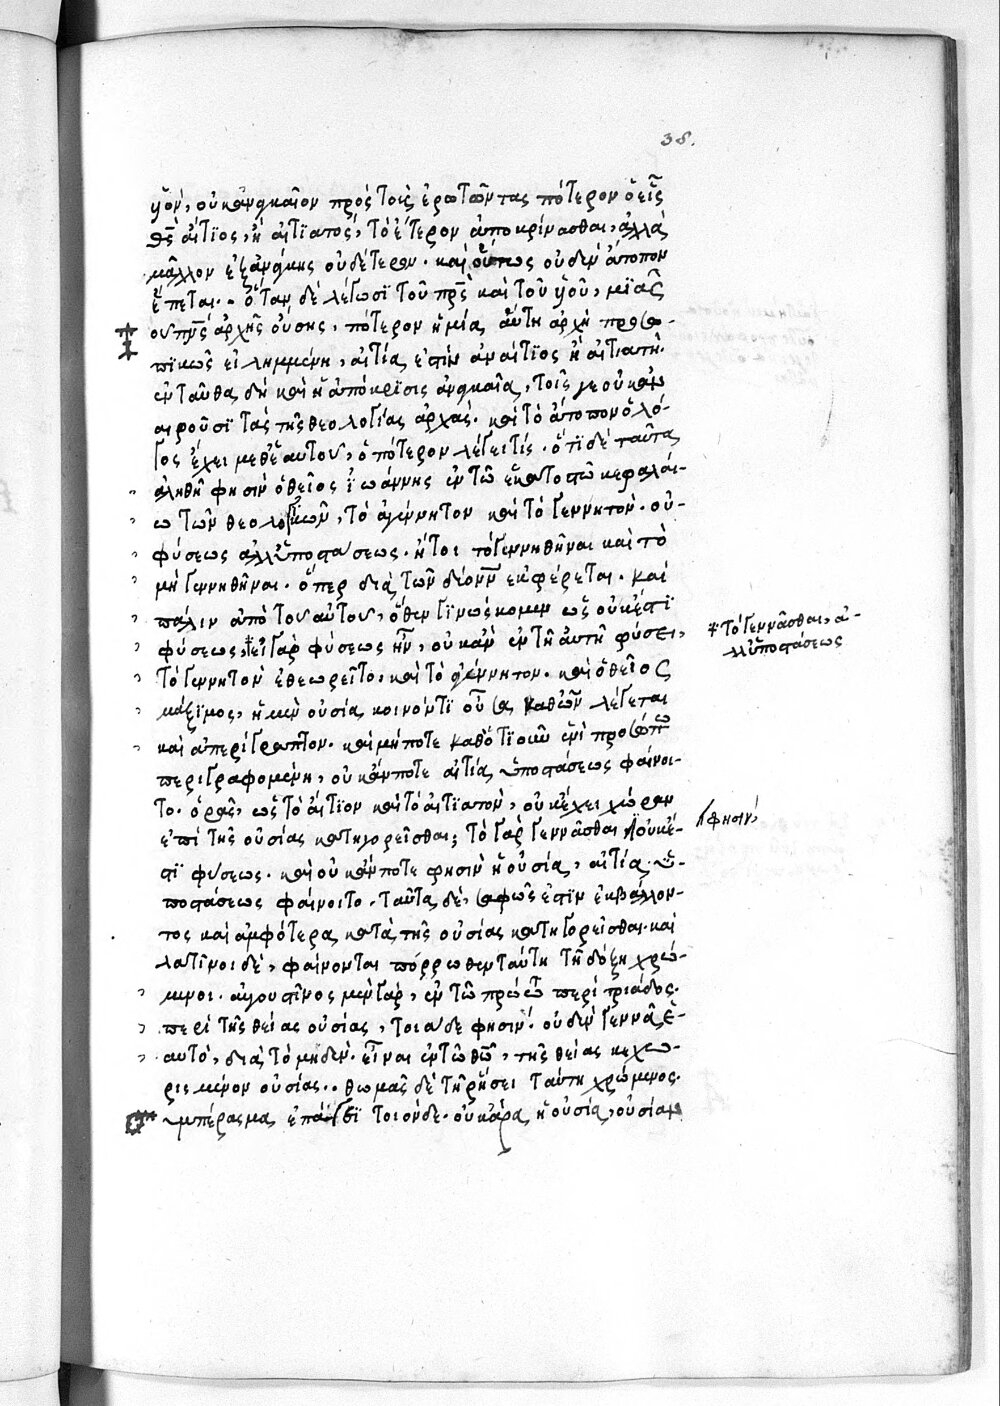 38.
υἱόν, οὐκ ἀναγκαῖον πρὸς τοὺς ἐρωτῶντας πότερον ὁ εἷς
θς αἴτιος, ἢ αἰτιατός, τὸ ἕτερον ἀποκρίνασθαι, ἀλλὰ
μᾶλλον ἐξανάγκης οὐδέτερον. καὶ οὕτως οὐδὲν ἄτοπον
ἕπεται. ὅταν δὲ λέγωσι τοῦ πρς καὶ τοῦ υἱοῦ, μίας
τοῦ πνς ἀρχῆς οὔσης, πότερον ἡ μία αὕτη ἀρχὴ προσω-
πικῶς εἰλημμένη, αἰτία ἐστὶν ἀναίτιος ἢ αἰτιατή.
ἐνταῦθα δὴ καὶ ἡ ἀπόκρισις ἀναγκαῖα, τοῖς γε οὐκ ἀν
αιροῦσι τὰς τῆς θεολογίας ἀρχάς. καὶ τὸ ἄτοπον ὁ λό-
γος ἔχει μεθ' ἑαυτοῦ, ὁπότερον λέγει τίς. ὅτι δὲ ταῦτα
ἀληθῆ φησὶν ὁ θεῖος ἰωάννης ἐν τῶ ἑκατοστῶ κεφαλαί-
ω τῶν θεολογικῶν, τὸ ἀγέννητον καὶ τὸ γεννητὸν. οὐ
φύσεως ἀλλ' ὑποστάσεως. ἤτοι τὸ γεννηθῆναι καὶ τὸ
μὴ γεννηθῆναι. ὅπερ διὰ τῶν δύο νν ἐκφέρεται. καὶ
πάλιν ἀπὸ τοῦ αὐτοῦ, ὅθεν γινώσκομεν ὡς οὐκ ἔστι
φύσεως, εἰ γὰρ φύσεως ἦν, οὐκ ἂν ἐν τῇ αὐτῇ φύσει,
τὸ γεννητὸν ἐθεωρεῖτο, καὶ τὸ ἀγέννητον. καὶ ὁ θεῖος
μάξιμος, ἡ μὲν οὐσία κοινόν τι οὖσα καθ' ὧν λέγεται
καὶ ἀπερίγραπτον. καὶ μήποτε καθ' ὁτιοῦν ἑνὶ προσώπω
περιγραφομένη, οὐκ ἄν ποτε αἰτία ὑποστάσεως φαίνοι-
το. ὁρᾶς, ὡς τὸ αἴτιον καὶ τὸ αἰτιατὸν, οὐκ ἔχει χώραν
ἐπὶ τῆς οὐσίας κατηγορεῖσθαι; τὸ γὰρ γεννᾶσθαι οὐκ ἔ-
στι φύσεως. καὶ οὐκ ἄν ποτε φησὶν ἡ οὐσία, αἰτία ὑ-
ποστάσεως φαίνοιτο. ταῦτα δὲ, σαφῶς ἐστὶν ἐκβάλλον-
τος καὶ ἀμφότερα κατὰ τῆς οὐσίας κατηγορεῖσθαι. καὶ
λατῖνοι δὲ, φαίνονται πόρρωθεν ταύτῃ τῇ δόξῃ χρώ-
μενοι. αὐγουστῖνος μὲν γὰρ, ἐν τῶ πρώτω περὶ τριάδος.
περὶ τῆς θείας οὐσίας, τοιάδε φησίν. οὐδὲν γεννᾷ ἑ-
αυτό, διὰ τὸ μηδὲν εἶναι ἐν τῶ θῶ, τῆς θείας κεχω-
ρισμένον οὐσίας. θωμᾶς δὲ τῇ ῥήσει ταύτῃ χρώμενος.
συμπέρασμα ἐπάγει τοιόνδε. οὐκ ἄρα ἡ οὐσία, οὐσίαν
τὸ γεννᾶσθαι, ἀ-
λλ' ὑποστάσεως
φησιν,